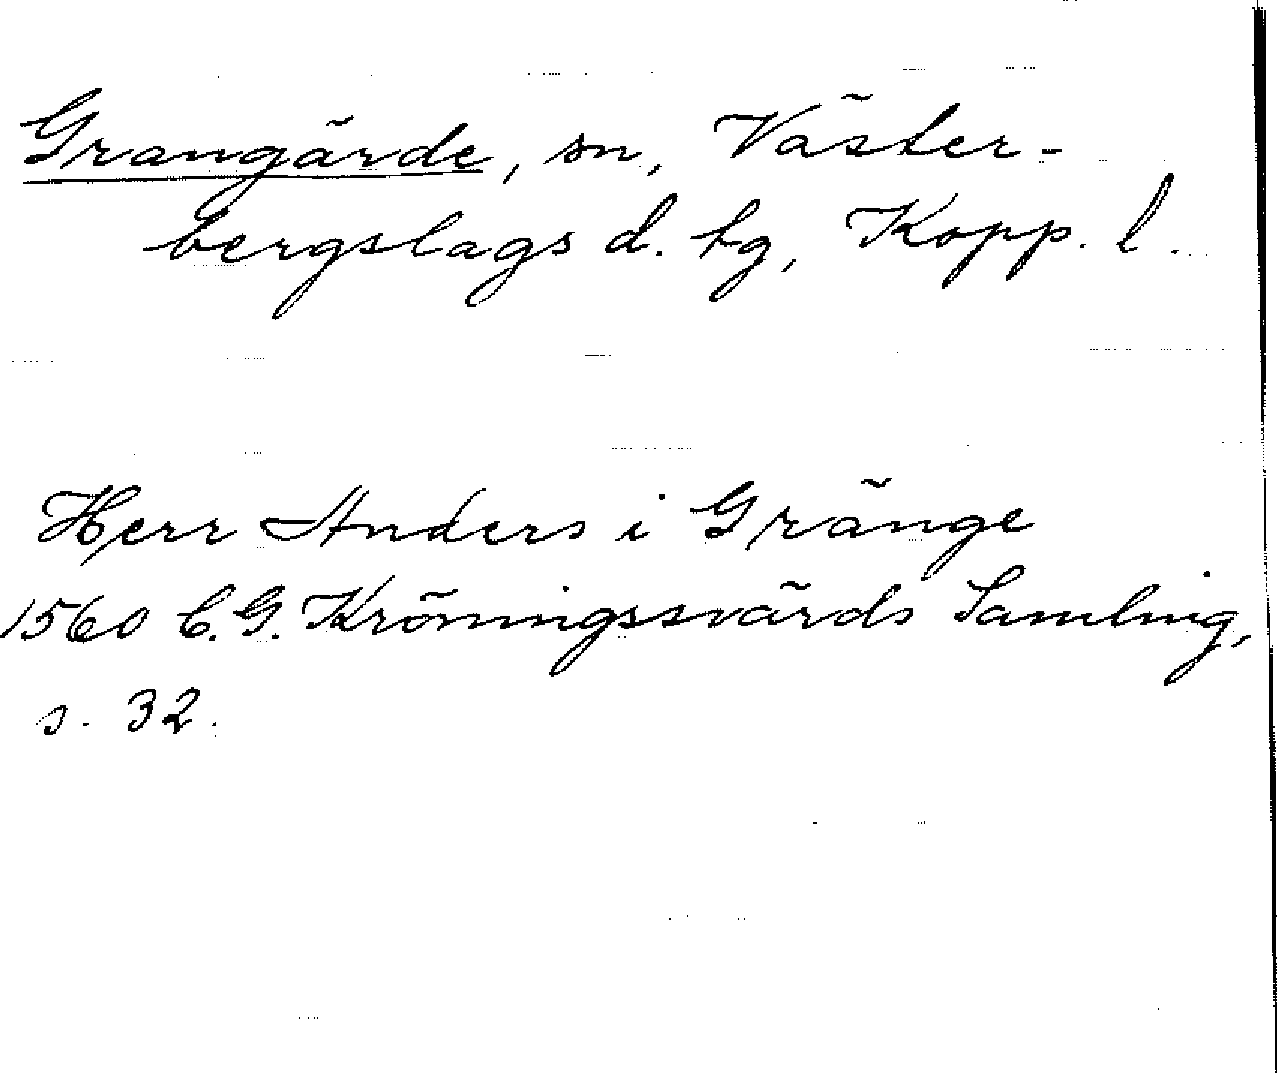 Grangärde, sn, Väster-
bergslags d. tg, Kopp. l.
Herr Anders i Gränge
1560 C. G. Kröningssvärds Samling,
s. 32.